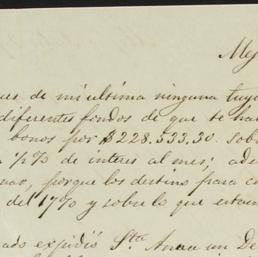 Me
ues de mi ultima ninguna tuya
diferentes fondos de que te ha
bonos por $228.533.30 sob
½ % de interes al mes; ade
porque los destino para c
del 17% y sobre lo que esta
ado expidió Sta Anna un De